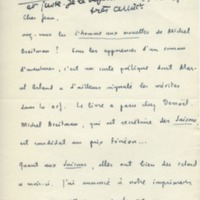 Cher Jean,
avez-vous lu l'homme aux mouettes de Michel
Breitman ? Sous les apparences d'un roman
d'aventures, c'est un conte poétique dont Mar-
cel Arland a d'ailleurs signalé les mérites
dans la nrf. Le livre a paru chez Denoël.
Michel Breitman, qui est secrétaire des Saisons,
est candidat au prix Fénéon...
Quant aux Saisons, elles ont bien du retard
ce mois-ci. J'ai annoncé à notre imprimeur